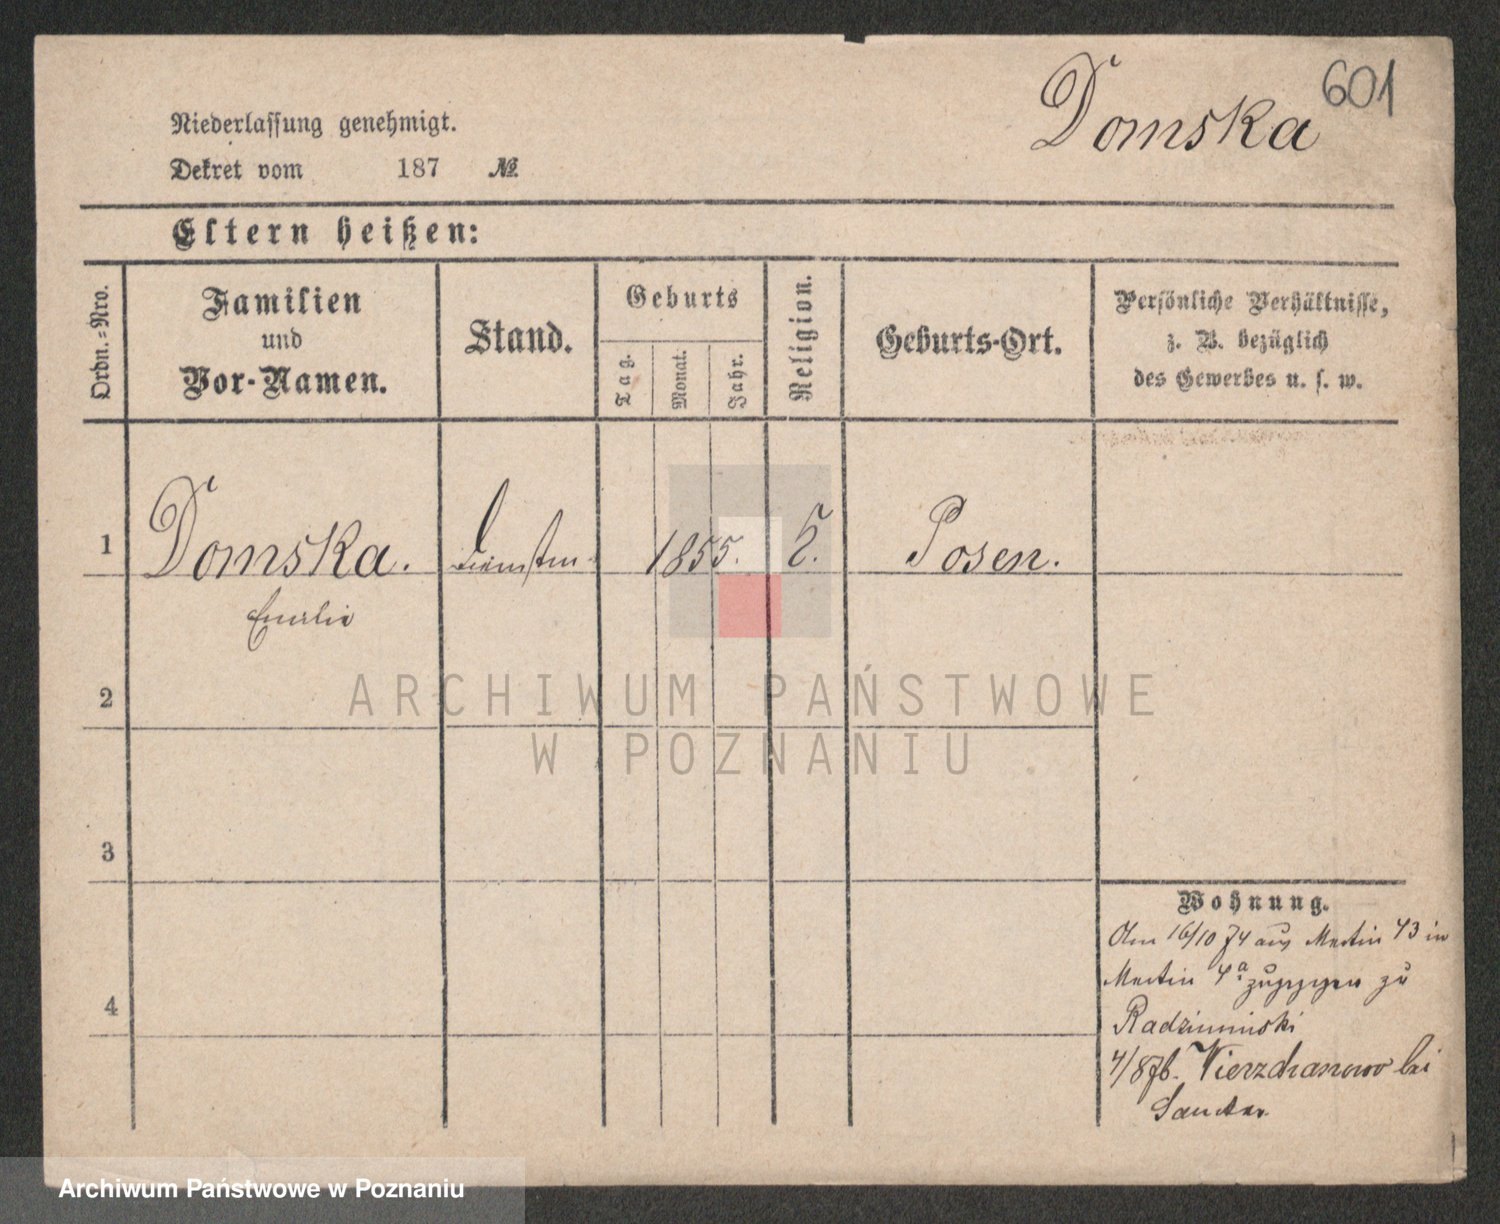 601
Domska
Niederlassung genehmigt.
Dekret vom 187 №
Eltern heißen:
Ordn.-Nro.
Familien
und
Vor-Namen.
Stand.
Geburts
Tag.
Monat.
Jahr.
Religion.
Geburts-Ort.
Persönliche Verhältnisse,
z. B. bezüglich
des Gewerbes u. s. w.
1 Domska. 1855. Posen.
Emilie
2
3
4
Wohnung.
Am 16/10 74 aus Martin 43 in
Martin 4a zugezogen zu
Radziminski
4/8 76. Wierzchanowo bei
Samter
ARCHIWUM PAŃSTWOWE
W POZNANIU
Archiwum Państwowe w Poznaniu